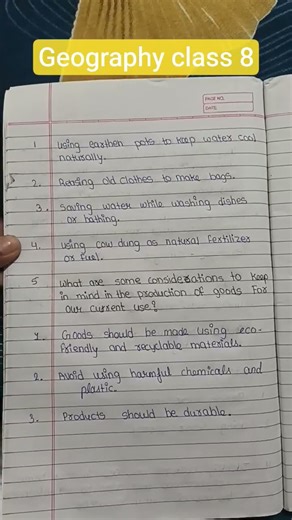 Geography class 8
PAGE NO.
DATE
1 Using earthen pots to keep water cool
naturally.
2. Reusing old clothes to make bags.
3. Saving water while washing dishes
or bathing.
4. Using cow dung as natural fertilizer
or fuel.
5 What are some considerations to keep
in mind in the production of goods for
our current use?
1. Goods should be made using eco-
friendly and recyclable materials.
2. Avoid using harmful chemicals and
plastic.
3. Products should be durable.